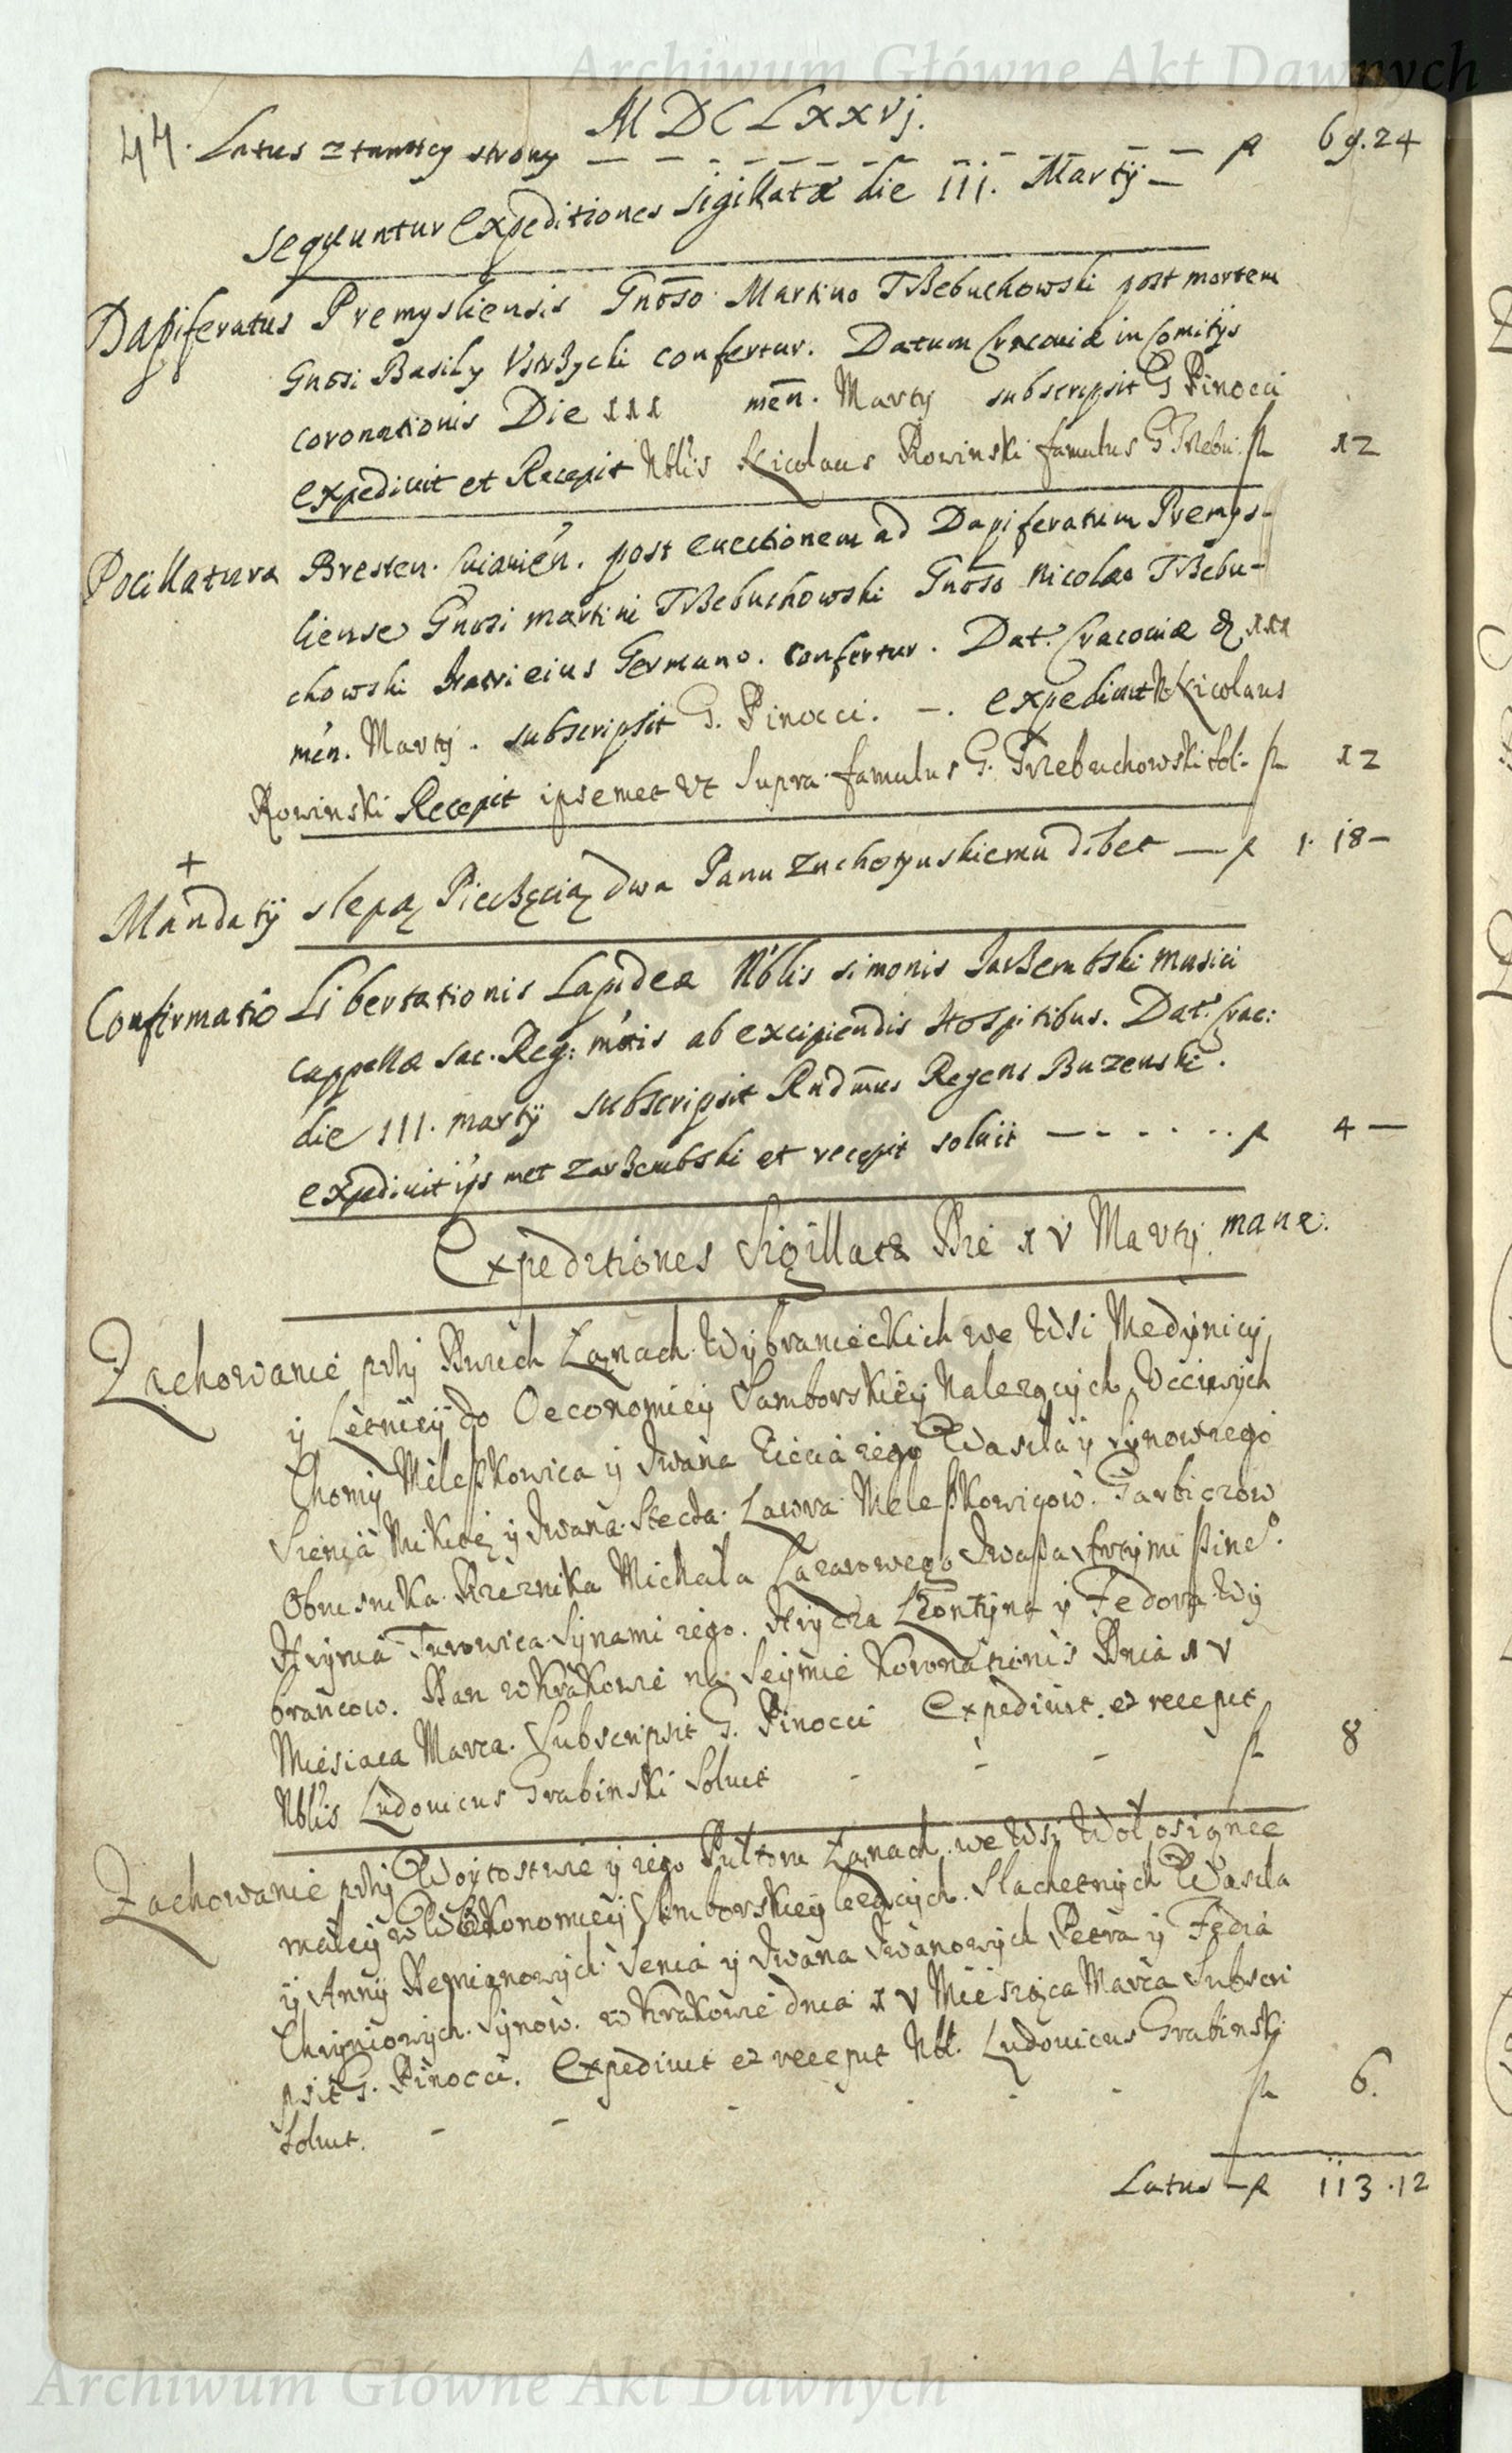 Archiwum Główne Akt Dawnych
M D C L x x v j.
44. Latus z tamtey strony — — - — — — — — — — ƒ 69.24
sequuntur Expeditiones sigillatæ die 111. Martij —
Dapiferatus Premysliensis Gnōso Martino Trzebuchowski post mortem
Gnosi Basily Ustrzycki confertur. Datum Cracouiæ in Comitijs
coronationis Die xxx mēn. Marty subscripsit G Pinocci
expediuit et Recepit Nblis Nicolaus Rowinski famulus G Trzebu: fl 12
Pocillatura Bresten. Cuiauień. post euectionem ad Dapiferatum Premys-
liense Gnosi martini Trzebuchowski Gnoso Nicolao Trzebu-
chowski fratri eius Germano. confertur. Dat. Cracouiæ d xxx
mén. Martij. subscripsit G. Pinocci. —. expediuit N Nicolaus
Rowinski Recepit ipsemet vt supra famulus G. Trzebuchowski sol: fl 12
+
Mandaty slepą Pieczęcią dwa Panu Zuchorzuskiemu debet — ƒ 1. 18 —
Confirmatio Libertationis Lapideæ Nblis simonis Jarzembski musici
cappellæ sac. Reg: mtis ab excipiendis Hospitibus. Dat. Crac:
die 111. martij subscripsit Rndmus Regens Buzenski.
expediuit ips met Zarzembski et recepit soluit — - - . . . ƒ 4 —
Expeditiones Sigillatæ Die x v Martij mane.
Zachowanie przy Dwuch Łanach Wybranieckich we Wsi Medynicy
y Letnicy do Oeconomiey Samborskiey Nalezących Ucciwych
Chomy Meleszkowica y Iwana Ziecia iego Wasila y Synow iego
Sienia Mikitę y Iwana Stecka Lawra Meleszkowicow. Garbiczow
Obuesnika Rzeznika Michala Lazarowego
Hrynia Turowica Synami iego. Hrycka Leontyna y Fedora Wy
brancow. Dan w Krakowie na Seymie Koronationis Dnia x v
Miesiaca Marca. Subscripsit G. Pinocci Expediuit. et recepit
Nblis Ludouicus Grabinski Soluit - - - fl 8
Zachowanie przy Woytostwie y iego Pultoru Łanach we Wsi Wołosiąnce
małey w Wekonomiey Samborskiey lezących. Slachetnych Wasila
y Anny Demianowych Senia y Iwana Iwanowych Petra y Fedia
Chryniowych Synow. w Krakowie dnia x v Miesiąca Marca Subscri
psit G. Pinocci. Expediuit et recepit Nbl. Ludouicus Grabinski
Soluit. - - - - - fl 6.
Latus — ƒ 113.12
Archiwum Główne Akt Dawnych